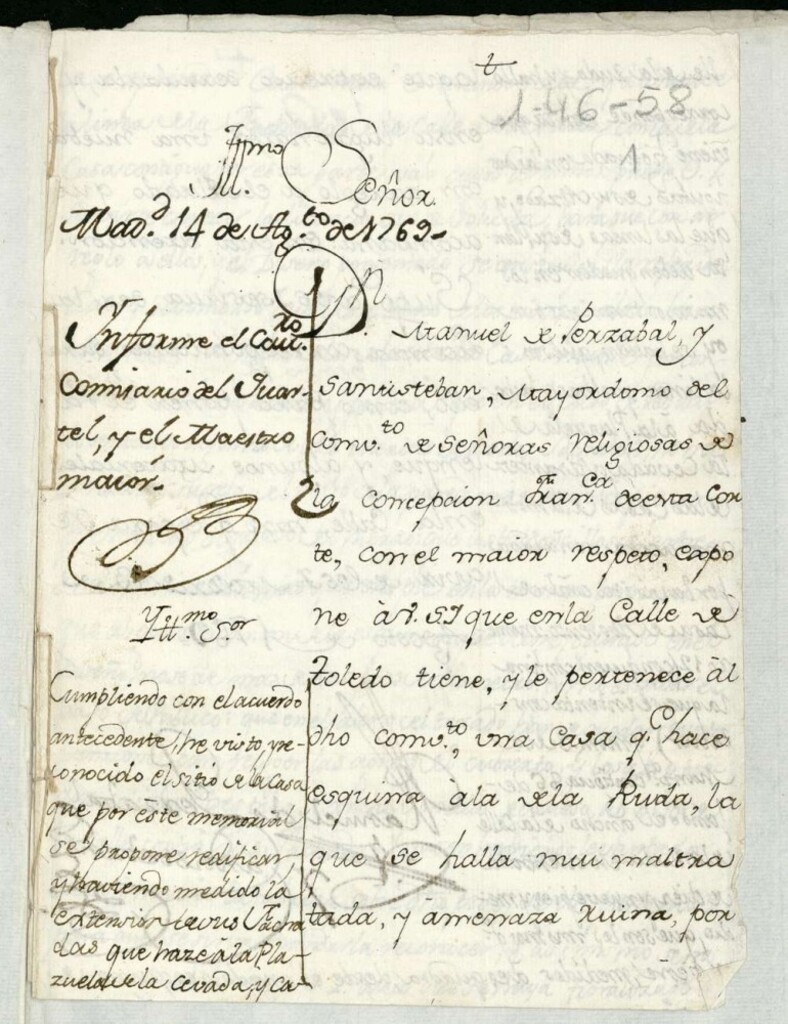 t
1-46-58
1
Yllmo Señor
Mad.d 14 de Ag.to de 1769-
Informe el Cau.ro
Comisario del Quar-
tel, y el Maestro
maior.
Yll.mo S.or
Cumpliendo con el acuerdo
antecedente, he visto, y re-
conocido el sitio de la Casa
que por este memorial
se propone redificar
y haviendo medido la
extension de sus Facha
das que haze à la Pla-
zuela de la Cevada, y Ca-
Dn. Manuel de Perzabal, y
Santisteban, Mayordomo del
Comv.to de Señoras Religiosas de
la Concepcion Fran.ca de esta Cor
te, con el maior respeto, expo
ne à V.S.Y que en la Calle de
Toledo tiene, y le pertenece àl
dho comv.to, una Casa q.e hace
esquina à la de la Ruda, la
que se halla mui maltra
tada, y àmenaza Ruina, por